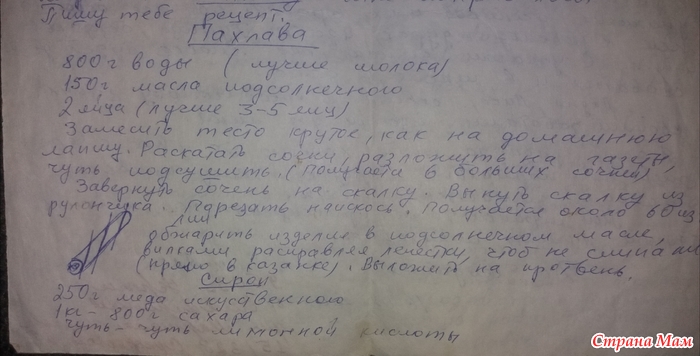 Пишу тебе рецепт.
Пахлава
800 г воды (лучше молока)
150г масла подсолнечного
2 яйца (лучше 3-5 яиц)
Замесить тесто круток, как на домашнюю
лапшу. Раскатать сочни, разложить на газеты,
чуть подсушить. (Получается 6 больших сочней)
Завернуть сочень на скалку. Вынуть скалку из
рулончика. Нарезать наискось. Получается около 60 из
обжарить изделие в подсолнечном масле,
вилками расправляя лепестки, чтоб не сминали
(прямо в казанке). Выложить на противень.
Сироп
250г меда искуственного
1кг - 800г сахара
чуть-чуть лимонной кислоты
Страна Мам